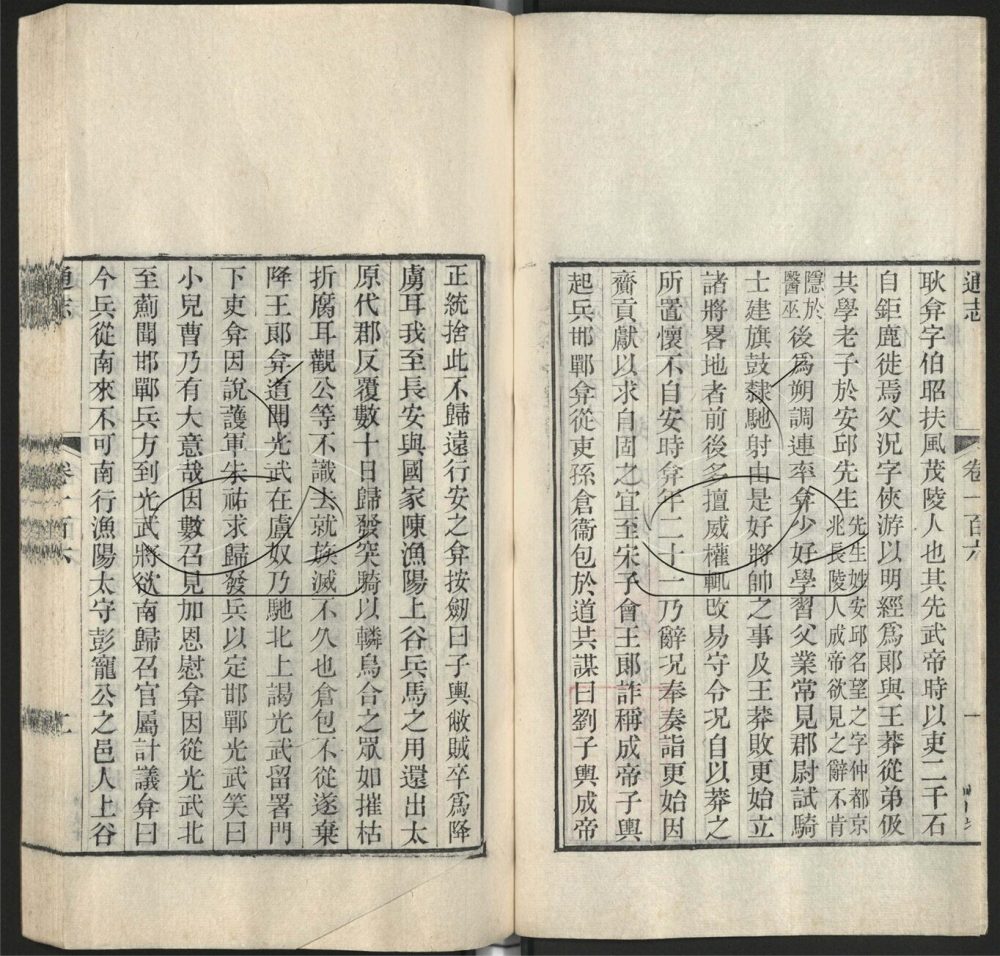 通志
卷一百六
一
耿弇字伯昭扶風茂陵人也其先武帝時以吏二千石
自鉅鹿徙焉父況字俠游以明經爲郎與王莽從弟伋
共學老子於安邱先生先生姓安邱名望之字仲都京
兆長陵人成帝欲見之辭不肯
隱於
醫巫後爲朔調連率弇少好學習父業常見郡尉試騎
士建旗鼓隸馳射由是好將帥之事及王莽敗更始立
諸將畧地者前後多擅威權輒改易守令况自以莽之
所置懷不自安時弇年二十一乃辭况奉奏詣更始因
齎貢獻以求自固之宜至宋子會王郎詐稱成帝子輿
起兵邯鄲弇從吏孫倉衞包於道共謀曰劉子輿成帝
正統捨此不歸遠行安之弇按劒曰子輿敝賊卒爲降
虜耳我至長安與國家陳漁陽上谷兵馬之用還出太
原代郡反覆數十日歸發突騎以轔烏合之眾如摧枯
折腐耳觀公等不識去就族滅不久也倉包不從遂棄
降王郎弇道聞光武在盧奴乃馳北上謁光武留署門
下吏弇因說護軍朱祐求歸發兵以定邯鄲光武笑曰
小兒曹乃有大意哉因數召見加恩慰弇因從光武北
至薊聞邯鄲兵方到光武將欲南歸召官屬計議弇曰
今兵從南來不可南行漁陽太守彭寵公之邑人上谷
通志
卷一百六
二